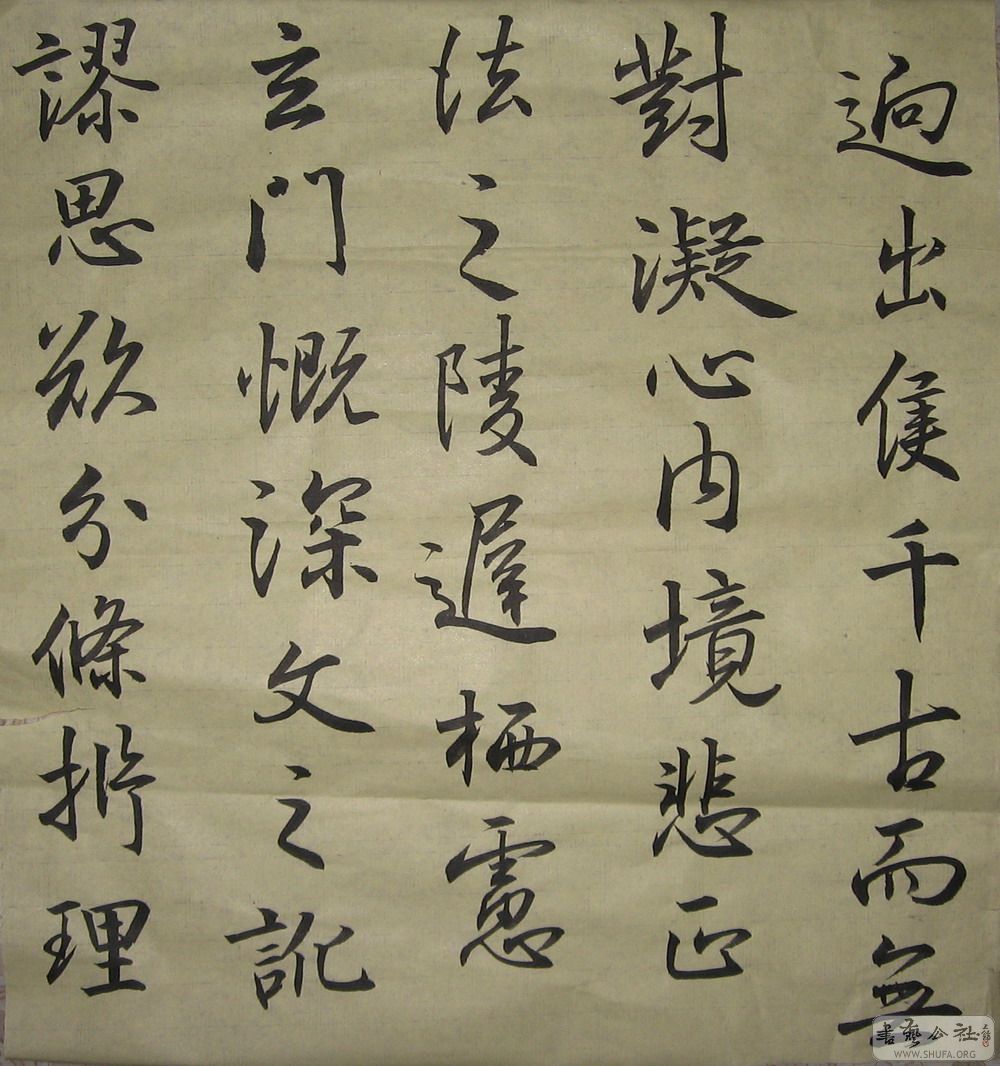 逈出侯千古而無
對凝心內境悲正
法之陵遲栖慮
玄門慨深文之訛
謬思欲分條析理
書藝公社
WWW.SHUFA.ORG